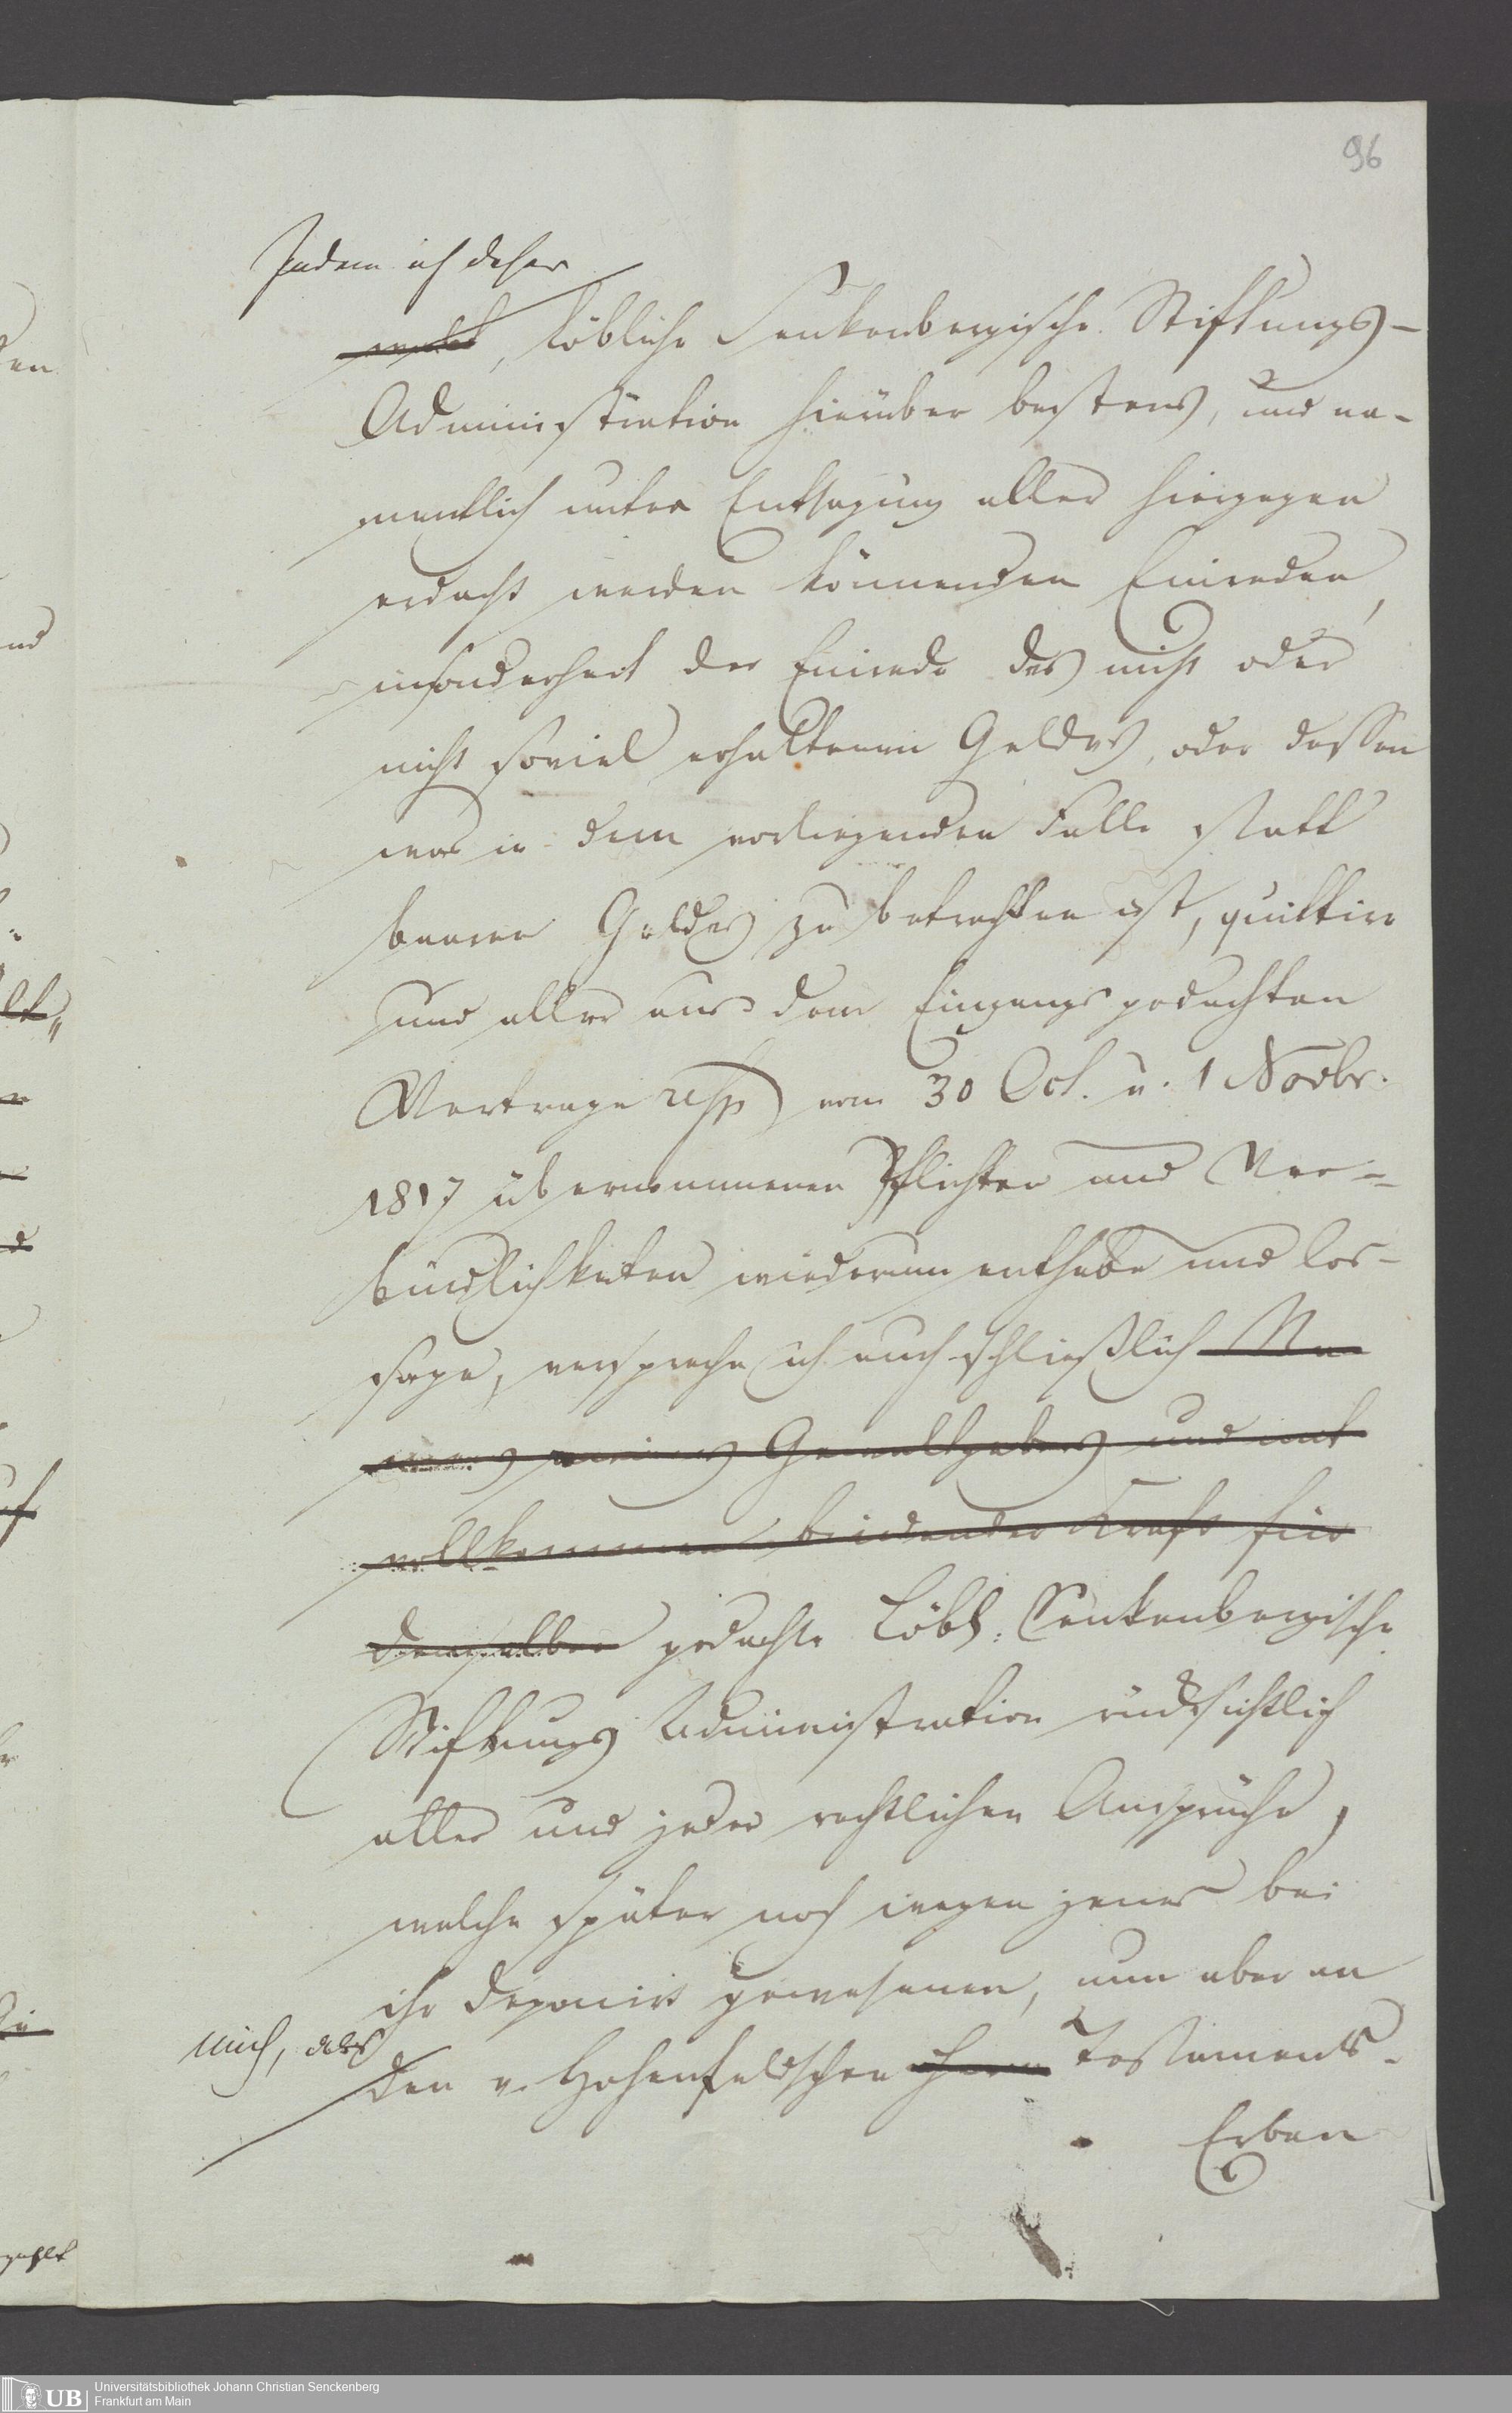 96
Indem ich daher
löbliche Senkenbergische Stiftungs-
Administration hierüber bestens, und na-
mentlich unter Entsagung aller hiergegen
erdacht werden könnenden Einreden,
insonderheit der Einrede des nicht oder
nicht soviel erhaltenen Geldes, oder dessen
was in dem vorliegenden Falle statt
baaren Geldes zu betrachten ist, quittire
und aller aus dem Eingangs gedachten
Vertrage resp. vom 30 Oct. u. 1 Novbr.
1817 übernommenen Pflichten und Ver-
bindlichkeiten wiederum enthebe und los-
sage, verspreche ich auch schließlich Na-
mens meines Gewaltgebers und mit
vollkommen bindender Kraft für
denselben gedachte Löbl. Senkenbergische
Stiftungs Administration rücksichtlich
aller und jeder rechtlichen Ansprüche,
welche später noch wegen jenes bei
ihr deponirt gewesenen, nun aber an
mich, als
den v. Hohenfeldschen Testaments-
Erben
zahlt
UB
Universitätsbibliothek Johann Christian Senckenberg
Frankfurt am Main